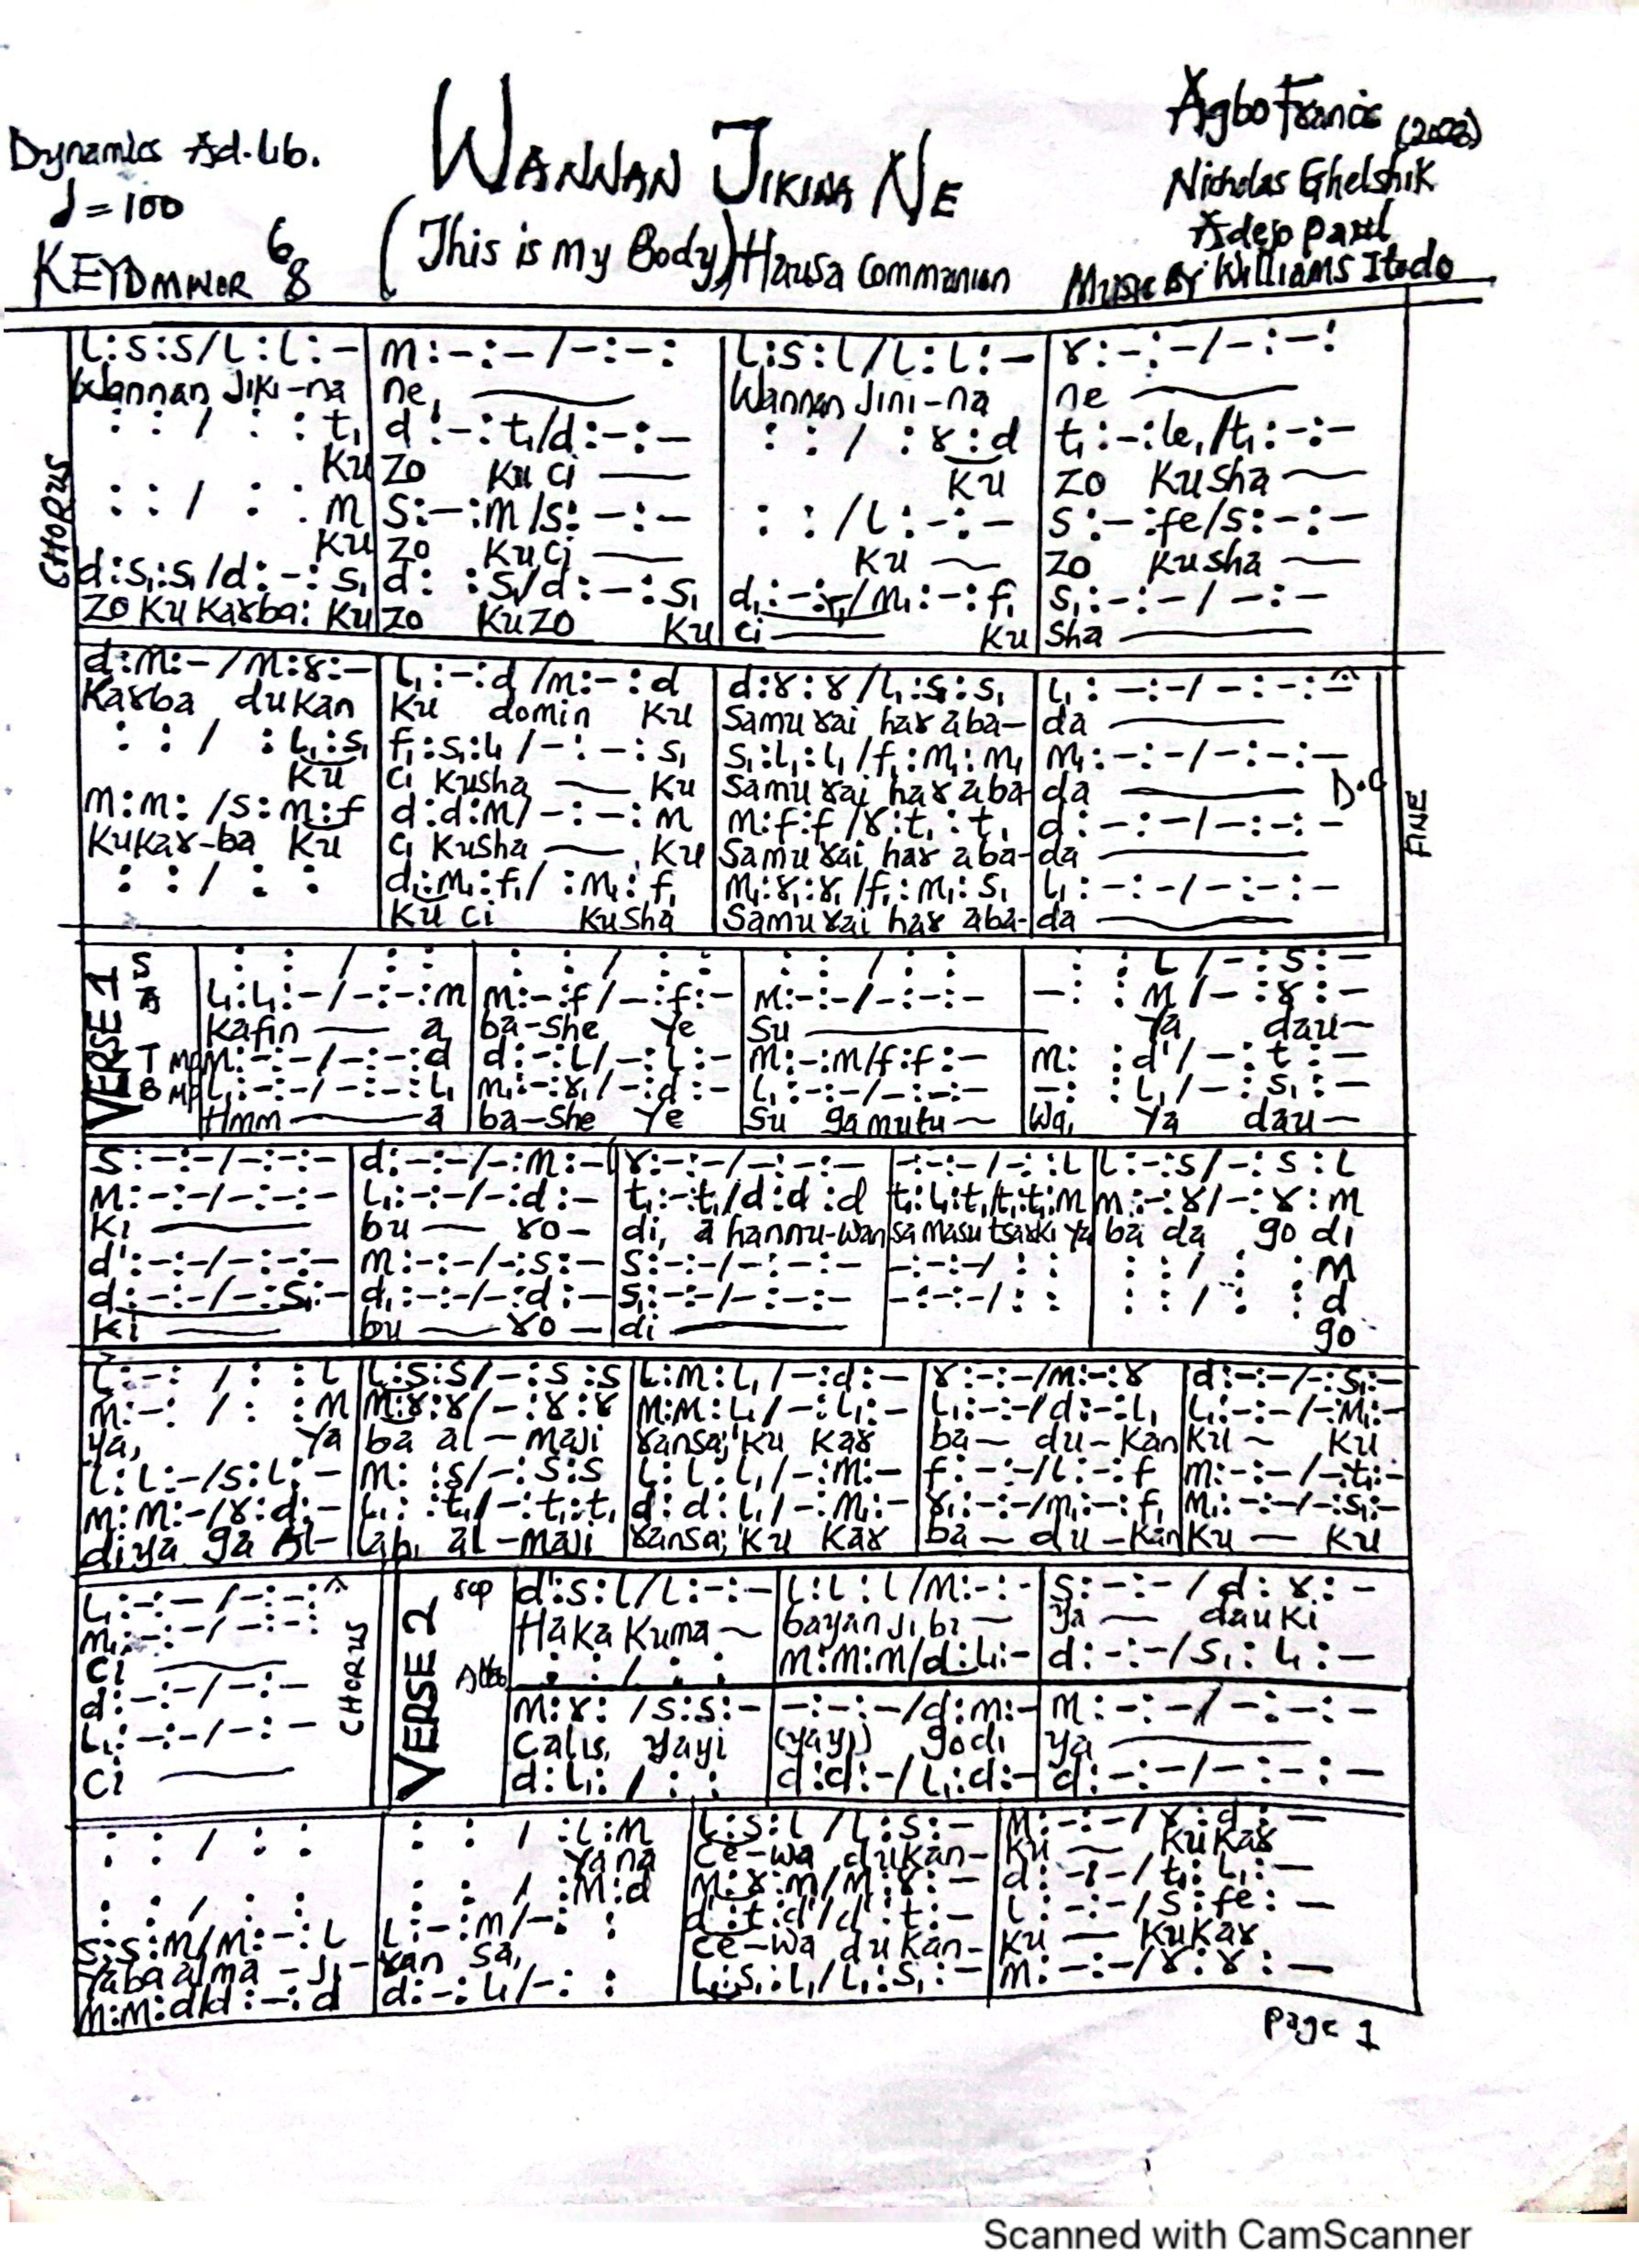 Dynamics Ad.Lib.
♩=100
KEY D MINOR 6/8
WANNAN JIKINA NE
(This is my Body) Hausa Communion
Agbo Francis
Nicholas Ghelshik
Adejo Paul
Music By Williams Itodo
CHORUS
L:s:s/L:L:- | m:-:-/-:-: | L:s:l/L:L:- | r:-:-/-:-:
Wannan Jiki-na | ne, | Wannan Jini-na | ne
: : / : : t₁ | d:-:t₁/d:-:- | : : / :r:d | t₁:-:le₁/t₁:-:-
Ku | zo Ku ci | Ku | zo Kusha
: : / : : m | s:-:m/s:-:- | : : /L:-:- | s:-:fe/s:-:-
Ku | zo Kuci | Ku | zo Kusha
d:s₁:s₁/d:-:s₁ | d: :s₁/d:-:s₁ | d₁:-:r₁/m₁:-:f₁ | s₁:-:-/-:-
Zo Ku Karba: Ku | zo Kuzo Ku | ci Ku | sha
d:m:-/m:r:- | L₁:-:d/m:-:d | d:r:r/L₁:s₁:s₁ | L₁:-:-/-:-:-
Karba dukan | Ku domin Ku | Samu rai har aba- | da
: : / :L₁:s₁ | f₁:s₁:L₁/-:-:s₁ | s₁:L₁:L₁/f₁:m₁:m₁ | m₁:-:-/-:-:-
Ku | ci Kusha Ku | Samu rai har aba- | da
D.C
FINE
m:m: /s:m:f | d:d:m/-:-:m | m:f:f/r:t₁:t₁ | d:-:-/-:-:-
Kukar-ba Ku | ci Kusha Ku | Samu rai har aba- | da
: : / : : | d₁:m₁:f₁/ :m₁:f₁ | m₁:r₁:r₁/f₁:m₁:s₁ | L₁:-:-/-:-:-
Ku ci Kusha | Samu rai har aba- | da
VERSE 1
S : : / : : | : : / : : | : : / : : | : :L/-:s:-
A L₁:L₁:-/-:-:m | m:-:f/-:f:- | m:-:-/-:-:- | -: :m/-:r:-
Kafin a | ba-she ye | su | Ya dau-
T m:-:-/-:-:d | d:-:L/-:L:- | m:-:m/f:f:- | m: :d'/-:t:-
B L₁:-:-/-:-:L₁ | m₁:-:r₁/-:d:- | L₁:-:-/-:-:- | -: :L₁/-:s₁:-
Hmm a | ba-she ye | su gamutu | Wa, Ya dau-
s:-:-/-:-:- | d:-:-/-:m:- | r:-:-/-:-:- | -:-:-/-: :L | L:-:s/-:s:L
m:-:-/-:-:- | L₁:-:-/-:d:- | t₁:-:t₁/d:d:d | t₁:L₁:t₁/t₁:t₁:m | m:-:r/-:r:m
Ki | bu ro- | di, a hannu-wan | sa masu tsarki ya | ba da go di
d':-:-/-:-:- | m:-:-/-:s:- | s:-:-/-:-:- | -:-:-/ : : | : : / : :m
d:-:-/-:s₁:- | d₁:-:-/-:d:- | s₁:-:-/-:-:- | -:-:-/ : : | : : / : :d
Ki | bu ro- | di | go
L:-: / : :L | L:s:s/-:s:s | L:m:L₁/-:d:- | r:-:-/m:-:r | d:-:-/-:s₁:-
m:-: / : :m | m:r:r/-:r:r | m:m:L₁/-:L₁:- | L₁:-:-/d:-:L₁ | L₁:-:-/-:m₁:-
Ya, Ya | ba al-maji | ransa; Ku Kar | ba- du-Kan | Ku Ku
L:L:-/s:L:- | m: :s/-:s:s | L:L:L₁/-:m:- | f:-:-/L:-:f | m:-:-/-:t₁:-
m:m:-/r:d:- | L₁: :t₁/-:t₁:t₁ | d:d:L₁/-:m₁:- | r₁:-:-/m₁:-:f₁ | m₁:-:-/-:s₁:-
diya ga Al- | lah, al-maji | ransa; Ku Kar | ba- du-Kan | Ku Ku
L₁:-:-/-:-:
m₁:-:-/-:-:
Ci
d:-:-/-:-
L₁:-:-/-:-
Ci
CHORUS
VERSE 2
sop d':s:l/L:-:- | L:L:L/m:-:- | s:-:-/d:r:-
Haka Kuma | bayan jibi | ya dauki
Alto : : / : : | m:m:m/d:L₁:- | d:-:-/s₁:L₁:-
m:r: /s:s:- | -:-:-/d:m:- | m:-:-/-:-:-
Calis, yayi | (yayi) godi | ya
d:L₁: / : : | d:d:-/L₁:d:- | d:-:-/-:-:-
: : / : : | : : / :L:m | L:s:l/L:s:- | m:-:-/r:d:-
Yana | Ce-wa dukan- | Ku KuKar
: : / : : | : : / :m:d | m:r:m/m:r:- | d:-:-/t₁:L₁:-
s:s:m/m:-:L | L:-:m/-: : | d':t:d'/d':t:- | L:-:-/s:fe:-
Yaba alma-ji- | ran sa, | Ce-wa dukan- | Ku KuKar
m:m:d/d:-:d | d:-:L₁/-: : | L₁:s₁:L₁/L₁:s₁:- | m:-:-/r:r:-
Page 1
Scanned with CamScanner